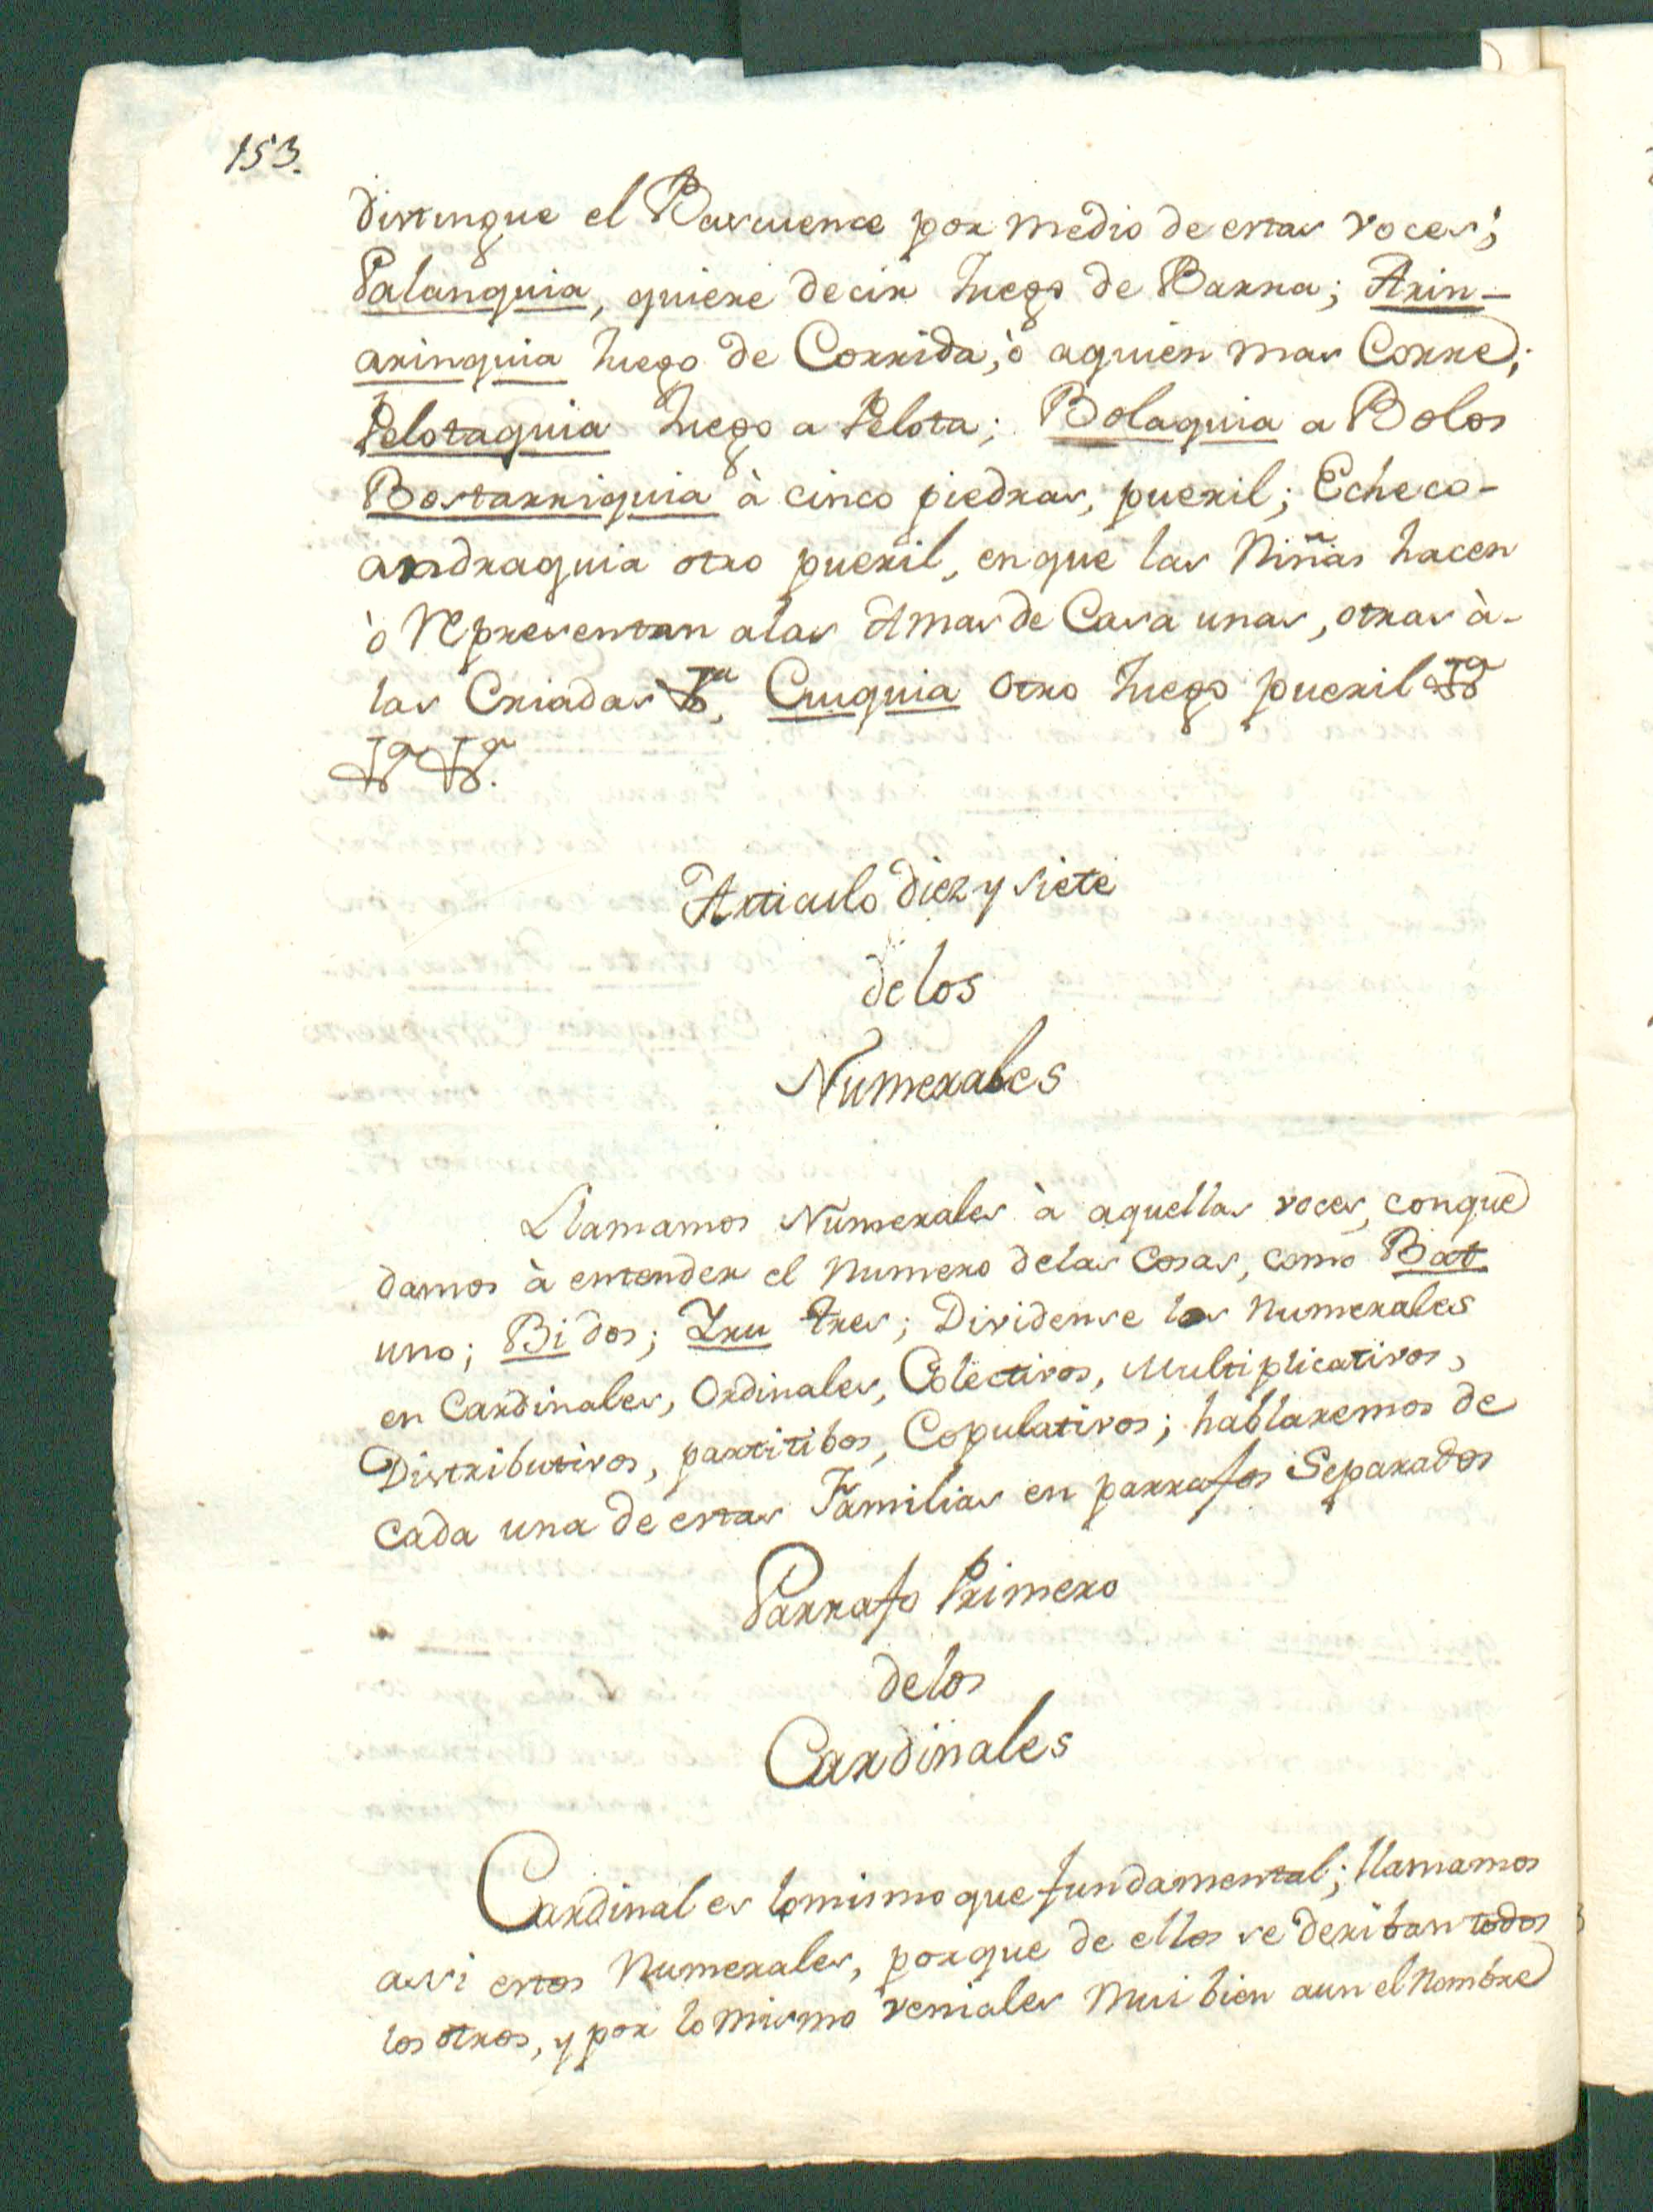 153.
distingue el Bascuence por medio de estas voces;
Palanquia, quiere decir Juego de Barra; Arin-
arinquia Juego de Corrida, ò aquien mas Corre;
Pelotaquia Juego a Pelota; Bolaquia a Bolos
Bostarriquia à cinco piedras, pueril; Echeco-
andraquia otro pueril, en que las Niñas hacen
ò representan alas Amas de Casa unas, otras à-
las Criadas &a, Cuquia otro Juego pueril &a
&a &a.
Articulo diez y siete
de los
Numerales
Llamamos Numerales à aquellas voces, conque
damos à entender el Numero delas Cosas, como Bat
uno; Bi dos; Iru tres; Dividense los Numerales
en Cardinales, Ordinales, Colectivos, Multiplicativos,
Distributivos, partitibos, Copulativos; hablaremos de
cada una de estas Familias en parrafos Separados
Parrafo Primero
delos
Cardinales
Cardinal es lomismo que fundamental; llamamos
assi estos Numerales, porque de ellos se deriban todos
los otros, y por lo mismo veniales mui bien aun el Nombre